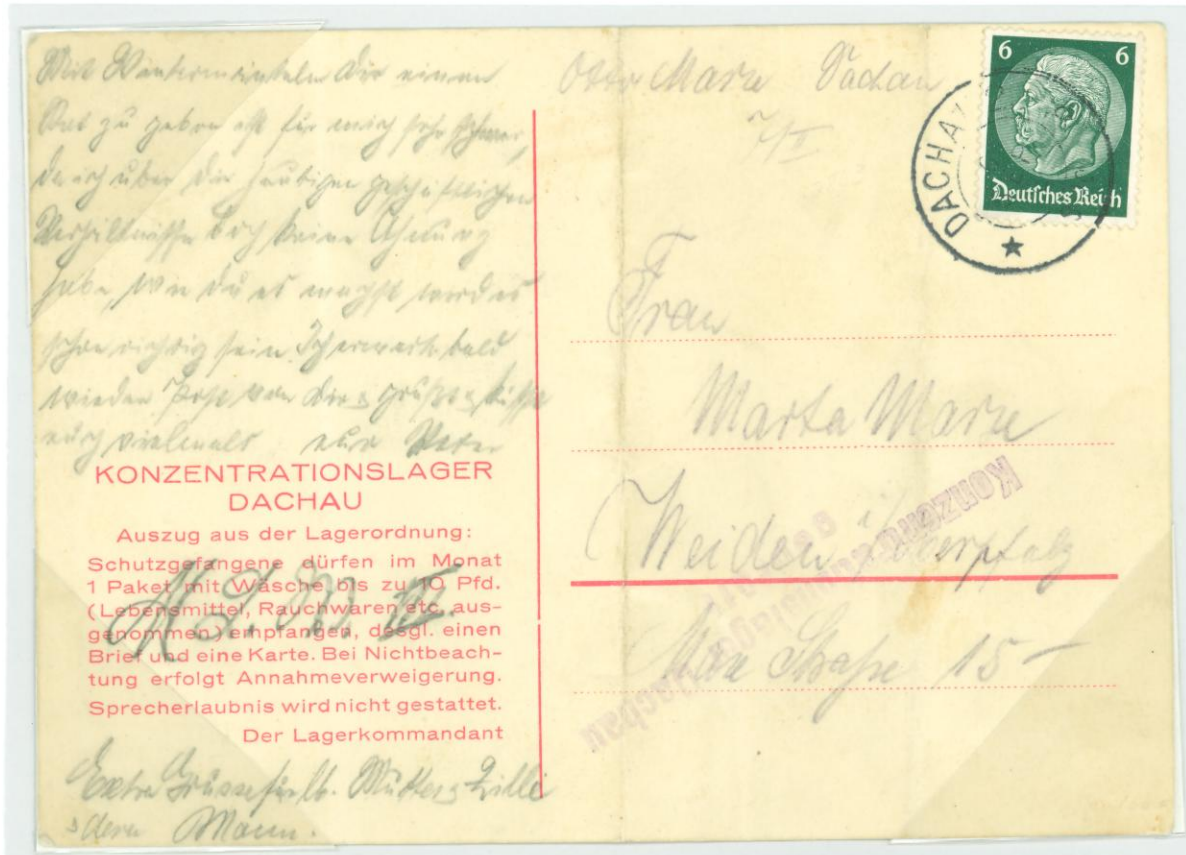 Mit Wintermänteln dir einen
Rat zu geben ist für mich sehr schwer,
da ich über die heutigen geschäftlichen
Verhältnisse doch keine Ahnung
habe, wie du es machst wird es
schon richtig sein. Ich erwarte bald
wieder Post von dir & grüße & küsse
euch vielmals euer
KONZENTRATIONSLAGER
DACHAU
Auszug aus der Lagerordnung:
Schutzgefangene dürfen im Monat
1 Paket mit Wäsche bis zu 10 Pfd.
(Lebensmittel, Rauchwaren etc. aus-
genommen) empfangen, desgl. einen
Brief und eine Karte. Bei Nichtbeach-
tung erfolgt Annahmeverweigerung.
Sprecherlaubnis wird nicht gestattet.
Der Lagerkommandant
Extra Grüsse für lb. Mutter & Zilli
& deren Mann.
Dachau
7/II
6 6
Deutsches Reich
DACHAU
Frau
Marta
Weiden i/Oberpfalz
Max Straße 15
Konzentrationslager Dachau